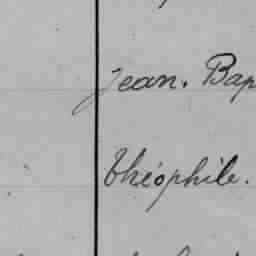 Jean. Bap
Théophile.